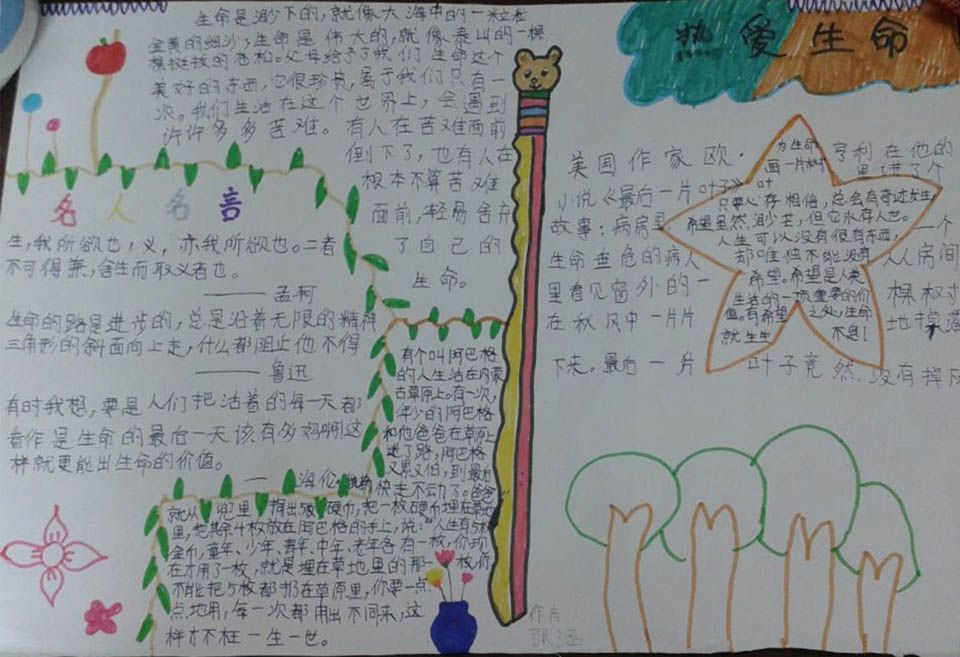 生命是渺下的,就像大海中的一粒粒
金黄的细沙,生命是伟大的,就像泰山的一棵
棵挺拔的苍松。父母给予了我们生命这个
美好的东西,它很珍贵,属于我们只有一
次。我们生活在这个世界上,会遇到
许许多多苦难。有人在苦难面前
倒下了,也有人在
根本不算苦难
面前,轻易舍弃
了自己的
生命。
名人名言
生,我所欲也,义,亦我所欲也。二者
不可得兼,舍生而取义者也。
——孟柯
生命的路是进步的,总是沿着无限的精神
三角形的斜面向上走,什么都阻止他不得
——鲁迅
有时我想,要是人们把活着的每一天都
看作是生命的最后一天该有多妈啊!这
样就更能出生命的价值。
——海伦·
有个叫阿巴格
的人生活在内蒙
古草原上。有一次,
年少的阿巴格
和他爸爸在草原上
迷了路,阿巴格
又累又怕,到最后
快走不动了。爸爸
就从兜里掏出5枚硬币,把一枚硬币埋在草地
里,把其余4枚放在阿巴格的手上,说:“人生有5枚
金币,童年、少年、青年、中年、老年各有一枚,你现
在才用了一枚,就是埋在草地里的那一枚,你
不能把5枚都扔在草原里,你要一点
点地用,每一次都用出不同来,这
样才不枉一生一世。
热爱生命
美国作家欧·亨利在他的
小说《最后一片叶子》里讲了个
故事:病房里,一个
生命垂危的病人从房间
里看见窗外的一棵树
在秋风中一片片地掉落
下来。最后一片叶子竟然没有掉
为生命
画一片树
叶
只要心存相信,总会有奇迹发生
希望虽然渺茫,但它永存人世。
人生可以没有很有东西,
却唯独不能没有
希望。希望是人类
生活的一项重要的价
值。有希望之处,生命
就生生不息!
作者
张涵